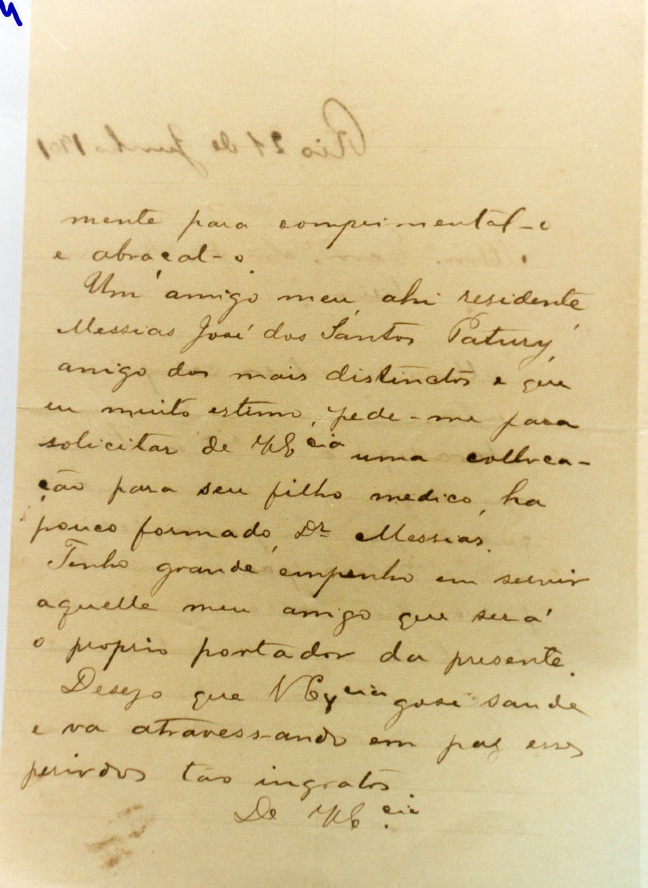 Rio 21 de Junho 1901
mente para comprimental-o
e abraçal-o.
Um amigo meu, ahi residente,
Messias José dos Santos Patury,
amigo dos mais distinctos e que
eu muito estimo, pede-me para
solicitar de VE cia uma colloca-
ção para seu filho medico, ha
pouco formado, Dr. Messias.
Tenho grande empenho em servir
aquelle meu amigo que será
o proprio portador da presente.
Desejo que V Ex cia gose saude
e va atravessando em paz esses
periodos tão ingratos.
De VE. cia